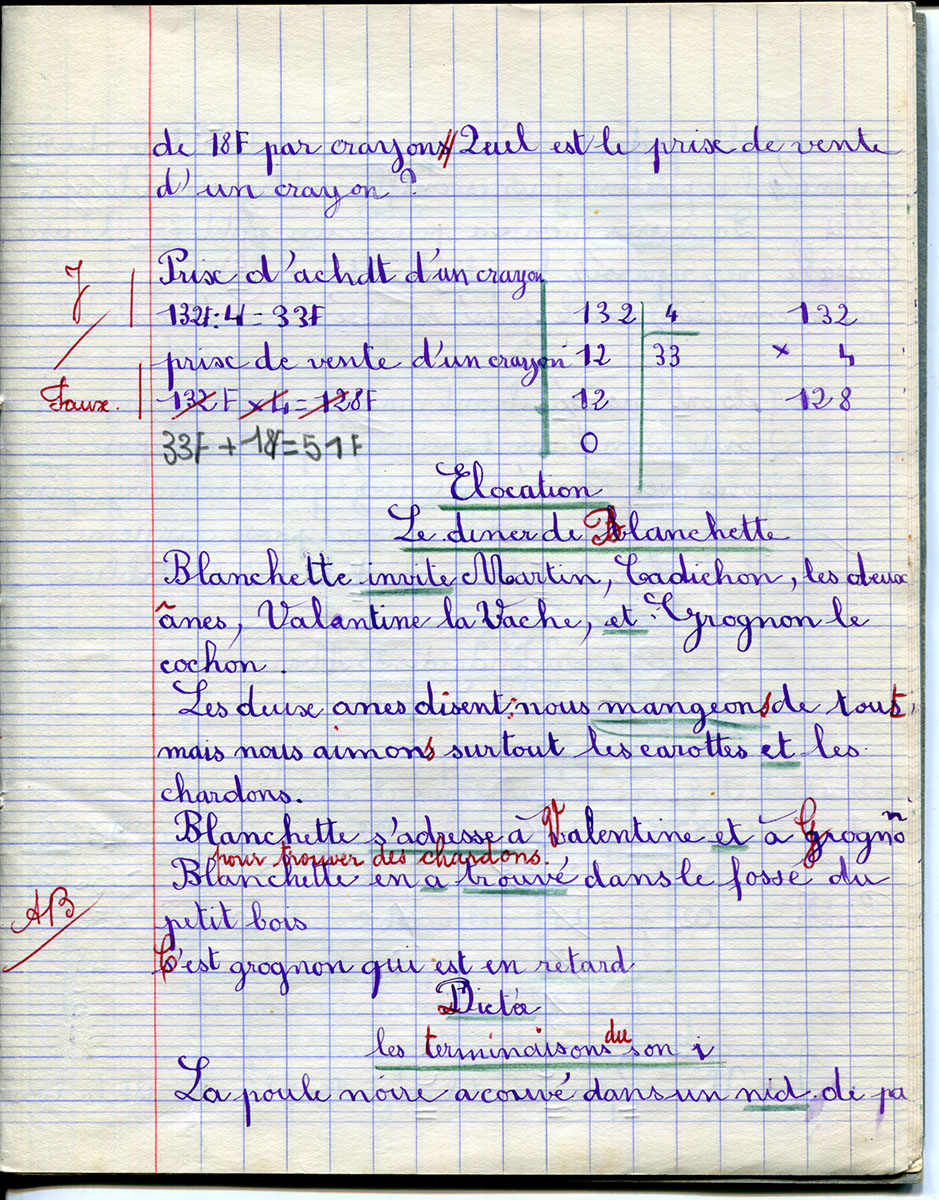 de 18F par crayons // Quel est le prise de vente
d'un crayon ?
J
Prise d'achat d'un crayon
132F : 4 = 33F
132 | 4
132
prise de vente d'un crayon
12
33
× 4
Faux.
132F × 4 = 128F
12
128
33F + 18F = 51F
0
Elocation
Le diner de Blanchette
Blanchette invite Martin, Cadichon, les deux
ânes, Valantine la Vache, et Grognon le
cochon.
Les deuxe anes disent : nous mangeons de tout,
mais nous aimons surtout les carottes et les
chardons.
Blanchette s'adresse à Valentine et à Grognon
pour trouver des chardons.
Blanchette en a trouvé dans le fossé du
AB
petit bois
C'est grognon qui est en retard
Dictée
les terminaisons du son i
La poule noire a couvé dans un nid de pa